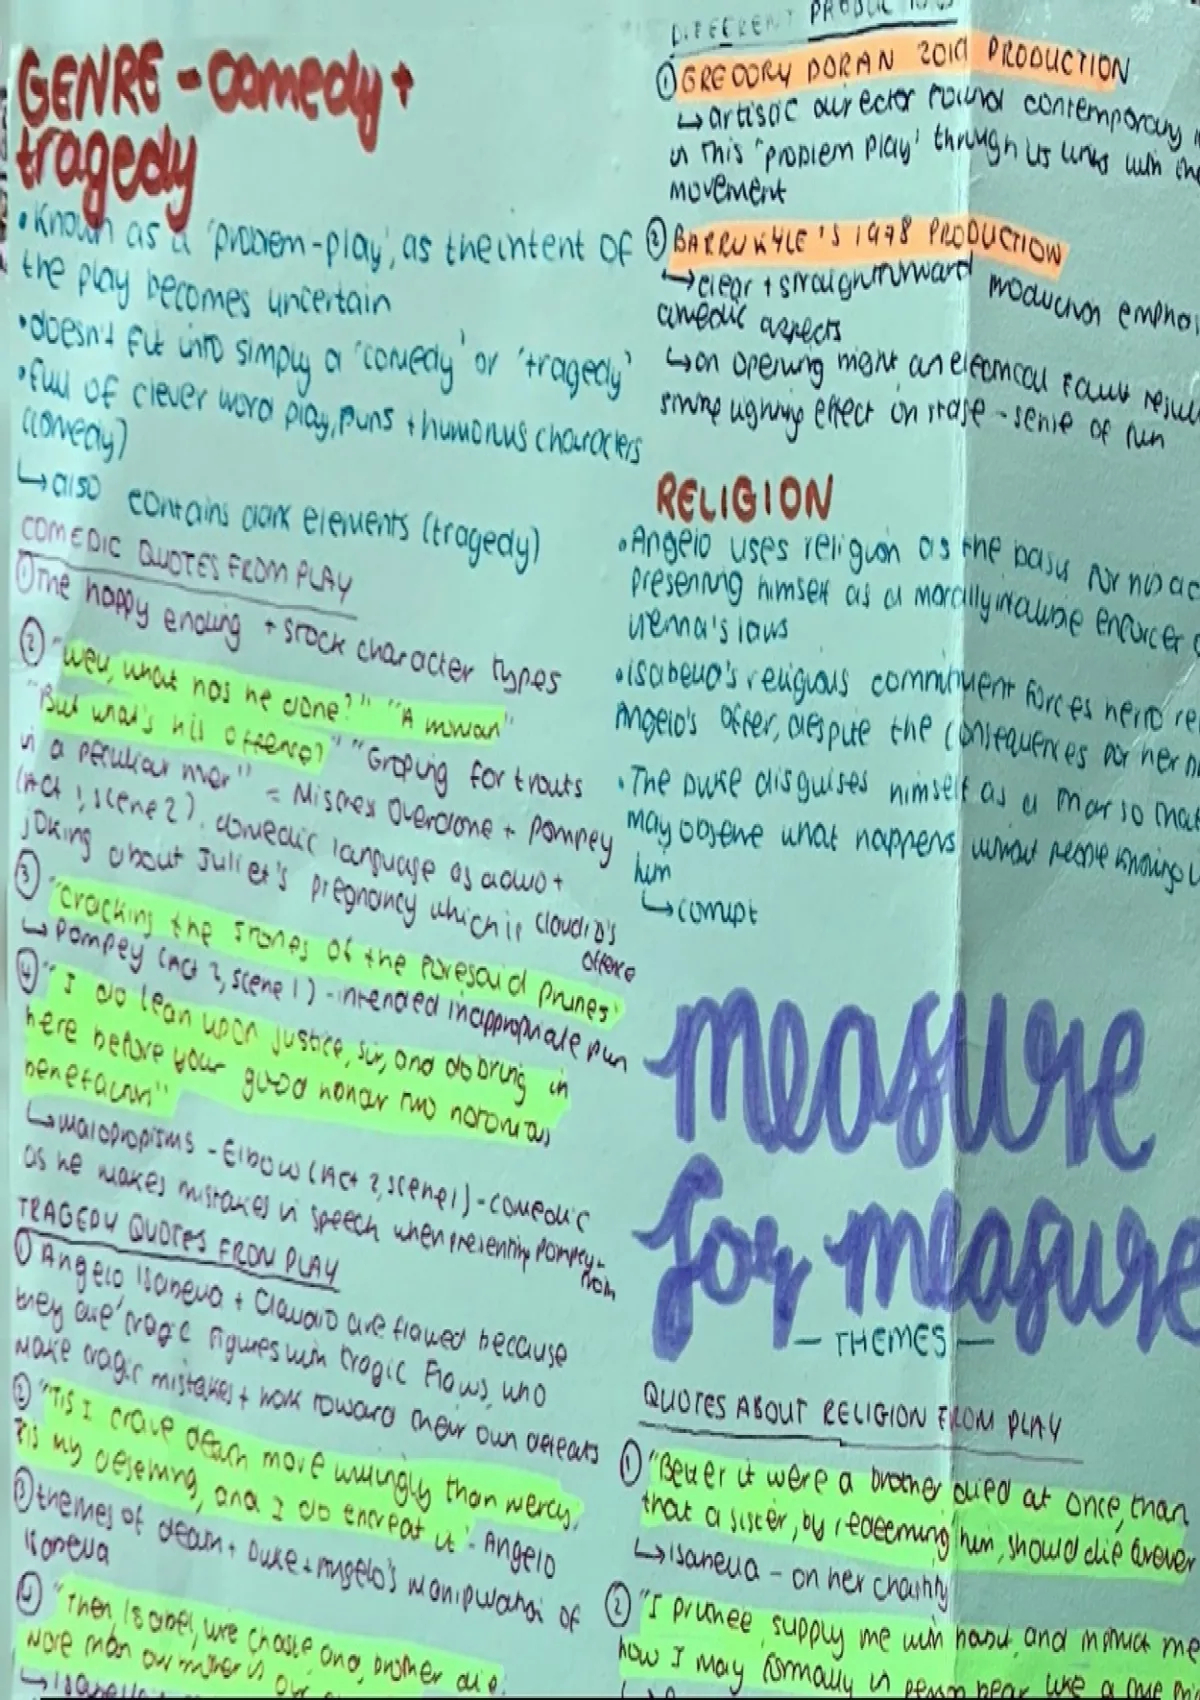 GENRE - Comedy +
tragedy
• Known as a 'problem-play', as the intent of
the play becomes uncertain
• doesn't fit into simply a 'comedy' or 'tragedy'
• full of clever word play, puns + humorous characters
(comedy)
↳ also contains dark elements (tragedy)
COMEDIC QUOTES FROM PLAY
① The happy ending + stock character types
② "Well, what has he done?" "A woman"
"But what's his offence?" "Groping for trouts
in a peculiar river" = Mistress Overdone + Pompey
(Act 1, scene 2). comedic language as
joking about Juliet's pregnancy which is Claudio's
offence
③ "Cracking the stones of the foresaid prunes"
↳ Pompey (Act 2, scene 1) - intended inappropriate pun
④ "I do lean upon justice, sir, and do bring in
here before your good honour two notorious
benefactors"
↳ malapropisms - Elbow (Act 2, scene 1) - comedic
as he makes mistakes in speech when presenting Pompey +
Froth
TRAGEDY QUOTES FROM PLAY
① Angelo, Isabella + Claudio are flawed because
they are 'tragic figures with tragic flaws, who
make tragic mistakes + work toward their own defeats
② "'Tis I crave death more willingly than mercy.
'Tis my deserving, and I do entreat it" - Angelo
③ themes of death + Duke + Angelo's manipulation of
Isabella
④ "Then, Isabel, live chaste, and, brother die.
More than our brother is our
↳ Isabella
DIFFERENT PRODUCTIONS
① GREGORY DORAN 2019 PRODUCTION
↳ artistic director found contemporary
in this 'problem play' through its links with the
movement
② BARRY KYLE'S 1978 PRODUCTION
↳ clear + straightforward production
comedic aspects
↳ on opening night an electrical fault
strobe lighting effect on stage - sense of fun
RELIGION
• Angelo uses religion as the basis for his
presenting himself as a morally enforcer
Vienna's laws
• Isabella's religious commitment forces her to
Angelo's offer, despite the consequences for her
• The Duke disguises himself as a friar so that
may observe what happens without people knowing
him
↳ corrupt
measure
for measure
— THEMES —
QUOTES ABOUT RELIGION FROM PLAY
① "Better it were a brother died at once, than
that a sister, by redeeming him, should die forever
↳ Isabella - on her chastity
② "I prithee, supply me with habit, and instruct me
how I may formally in person bear like a true